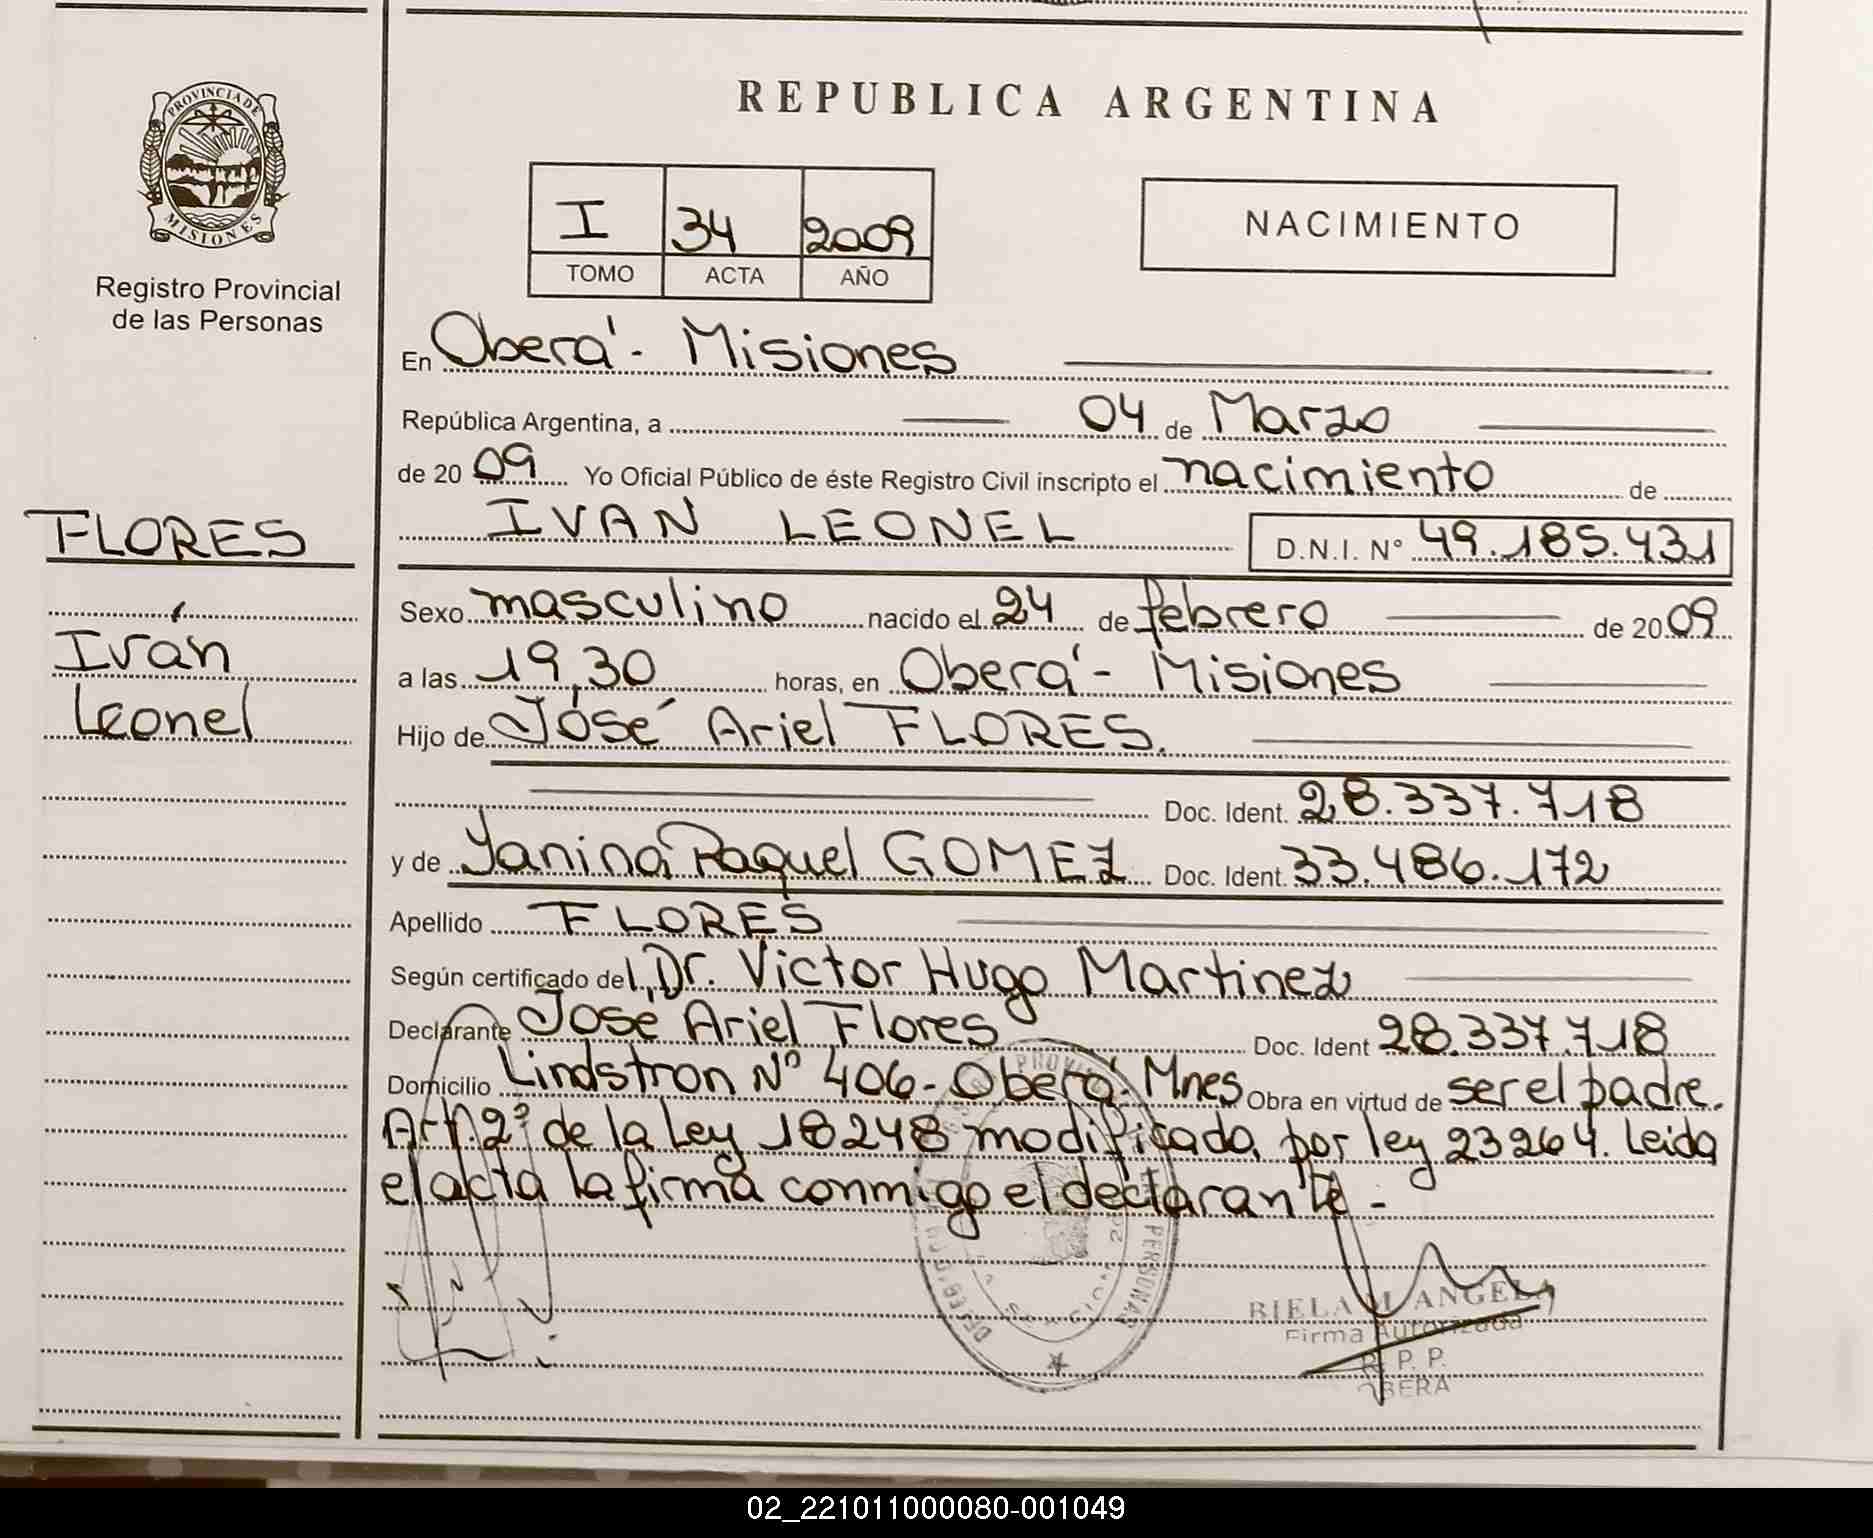 REPUBLICA ARGENTINA
PROVINCIA DE
MISIONES
Registro Provincial
de las Personas
I 34 2009
TOMO ACTA AÑO
NACIMIENTO
En Oberá - Misiones
República Argentina, a 04 de Marzo
de 2009 Yo Oficial Público de éste Registro Civil inscripto el nacimiento de
IVAN LEONEL D.N.I. N° 49.185.431
FLORES
Iván
Leonel
Sexo masculino nacido el 24 de febrero de 2009
a las 19,30 horas, en Oberá - Misiones
Hijo de José Ariel FLORES.
Doc. Ident. 28.337.718
y de Yanina Raquel GOMEZ Doc. Ident. 33.486.172
Apellido FLORES
Según certificado del Dr. Victor Hugo Martinez
Declarante José Ariel Flores Doc. Ident 28.337.718
Domicilio Lindstron N° 406 - Oberá - Mnes Obra en virtud de ser el padre.
Art. 2° de la Ley 18248 modificada por ley 23264. Leida
el acta la firma conmigo el declarante -
BIELA M ANGELA
Firma Autorizada
R. P. P.
OBERA
PERSONAS
02_221011000080-001049